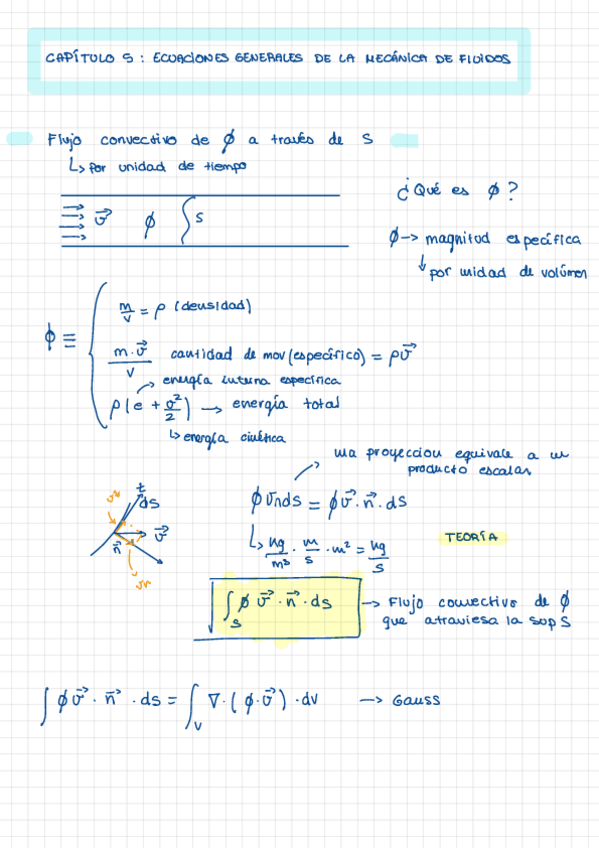 CAPÍTULO 5 : ECUACIONES GENERALES DE LA MECÁNICA DE FLUIDOS
Flujo convectivo de ϕ a través de S
↳ por unidad de tiempo
v⃗ ϕ S
¿Qué es ϕ?
ϕ → magnitud específica
↓ por unidad de volúmen
ϕ ≡
m/v = ρ (densidad)
m·v⃗/v cantidad de mov (específico) = ρv⃗
→ energía interna específica
ρ(e + v²/2) → energía total
↳ energía cinética
una proyeccion equivale a un
producto escalar
ϕ vn ds = ϕ v⃗ · n⃗ · ds
↳ kg/m³ · m/s · m² = kg/s
TEORÍA
vt t ds v⃗ n⃗ vn
∫s ϕ v⃗ · n⃗ · ds → Flujo convectivo de ϕ
que atraviesa la sup S
∫ ϕ v⃗ · n⃗ · ds = ∫v ∇ · (ϕ · v⃗) · dv → Gauss